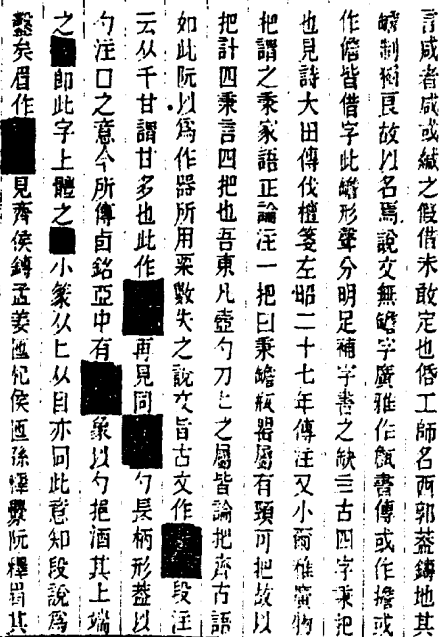 言咸者咸或緘之假借未敢定也俻工師名西郭葢鑄地其
制猶良故以名焉說文無字廣雅作書傳或作擔或
作儋皆借字此形聲分明足補字書之缺亖古四字秉把
也見詩大田傳伐檀箋左昭二十七年傳注又小爾雅廣物
把謂之秉家語正論注一把曰秉瓶器屬有頸可把故以
把計四秉言四把也吾東凡壺勺刀匕之屬皆論把齊古語
如此阮以爲作器所用粟數失之說文旨古文作段注
云从千甘謂甘多也此作再見同勺長柄形葢以
勺注口之意今所傳卣銘亞中有象以勺挹酒其上端
之卽此字上體之小篆从匕从目亦同此意知段說爲
鑿矣眉作見齊侯鎛孟姜匜杞侯匜孫阮釋其